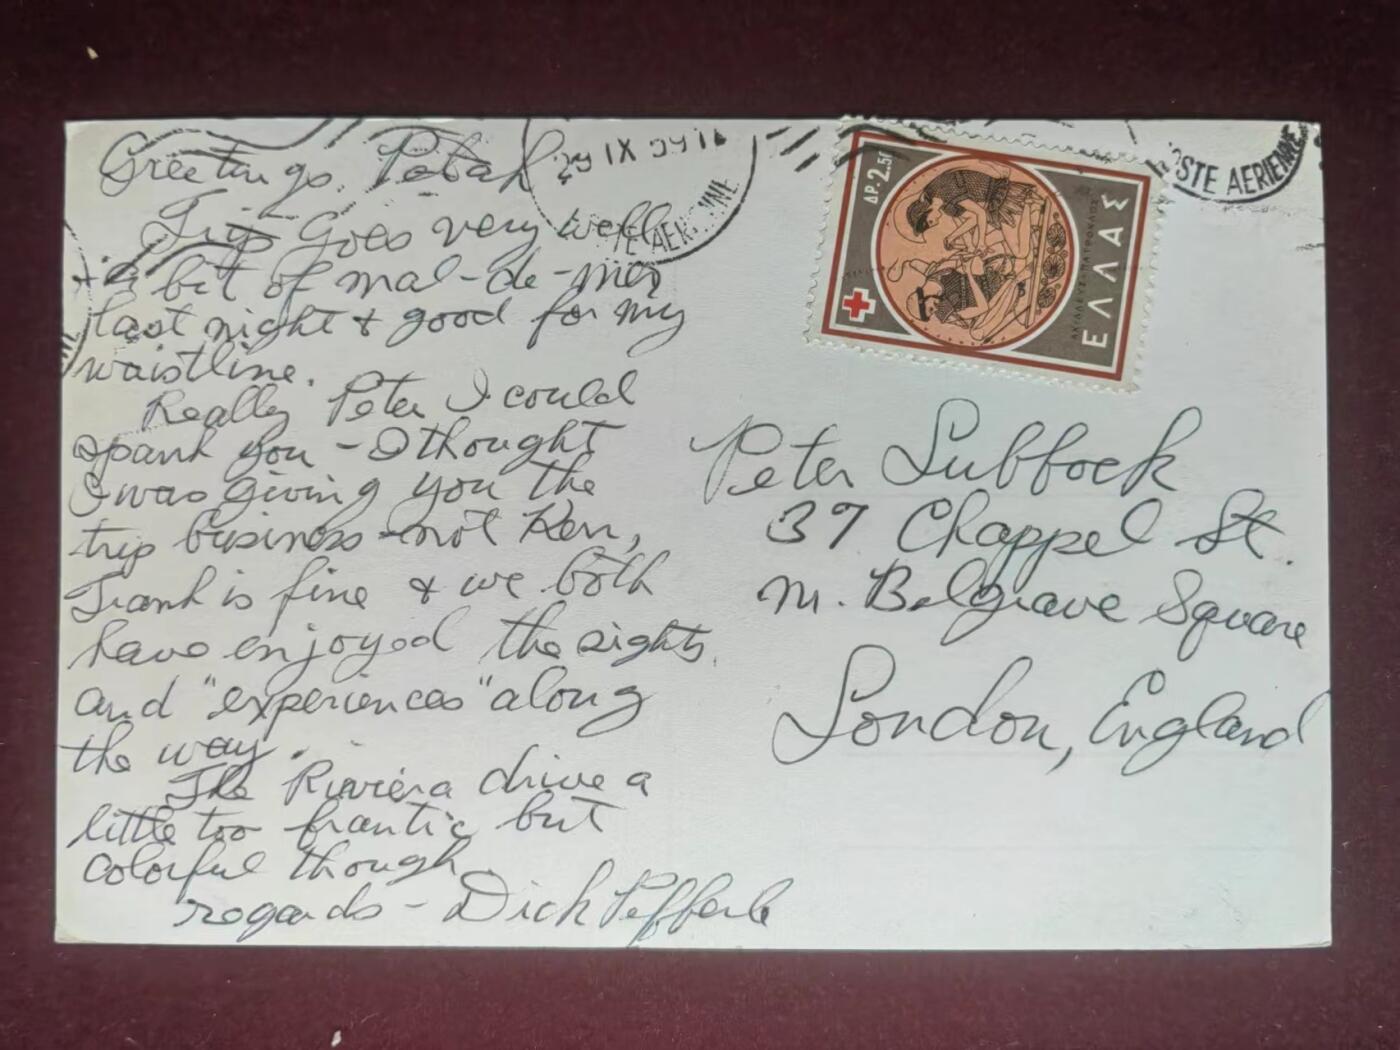 Greetings. Petah
Trip goes very well
+ a bit of mal-de-mer
last night + good for my
waistline.
Really Peter I could
spank you - I thought
I was giving you the
trip business - not Ken,
Frank is fine + we both
have enjoyed the sights
and "experiences" along
the way.
The Riviera drive a
little too frantic but
colorful though
regards - Dick Pefferle
29 IX 59
STE AERIENNE
ΔΡ. 2.50
ΑΧΙΛΛΕΥΣ-ΠΑΤΡΟΚΛΟΣ
ΕΛΛΑΣ
Peter Lubbock
37 Chappel St.
N. Belgrave Square
London, England